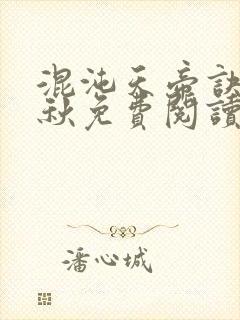 混沌天帝訣
秋免費閱讀
潘心城